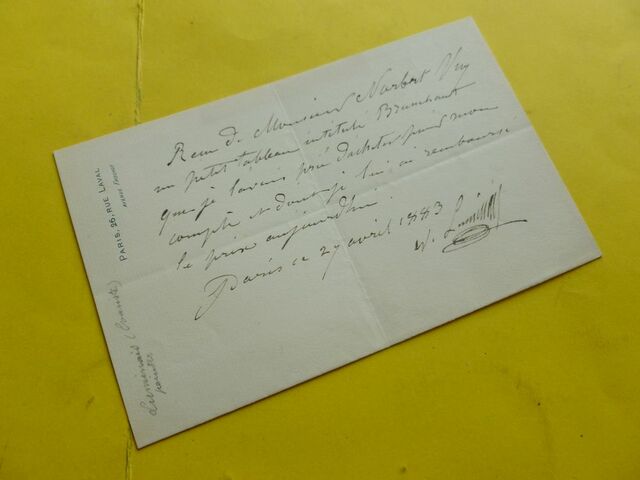 PARIS, 26, RUE LAVAL
AVENUE FROCHOT
Recu de Monsieur Norbert
un petit tableau intitulé Brunehaut
que je l'avais prié d'acheter pour mon
compte et dont je lui ai remboursé
le prix aujourd'hui.
Paris ce 27 avril 1883
Luminais (Evariste)
peintre